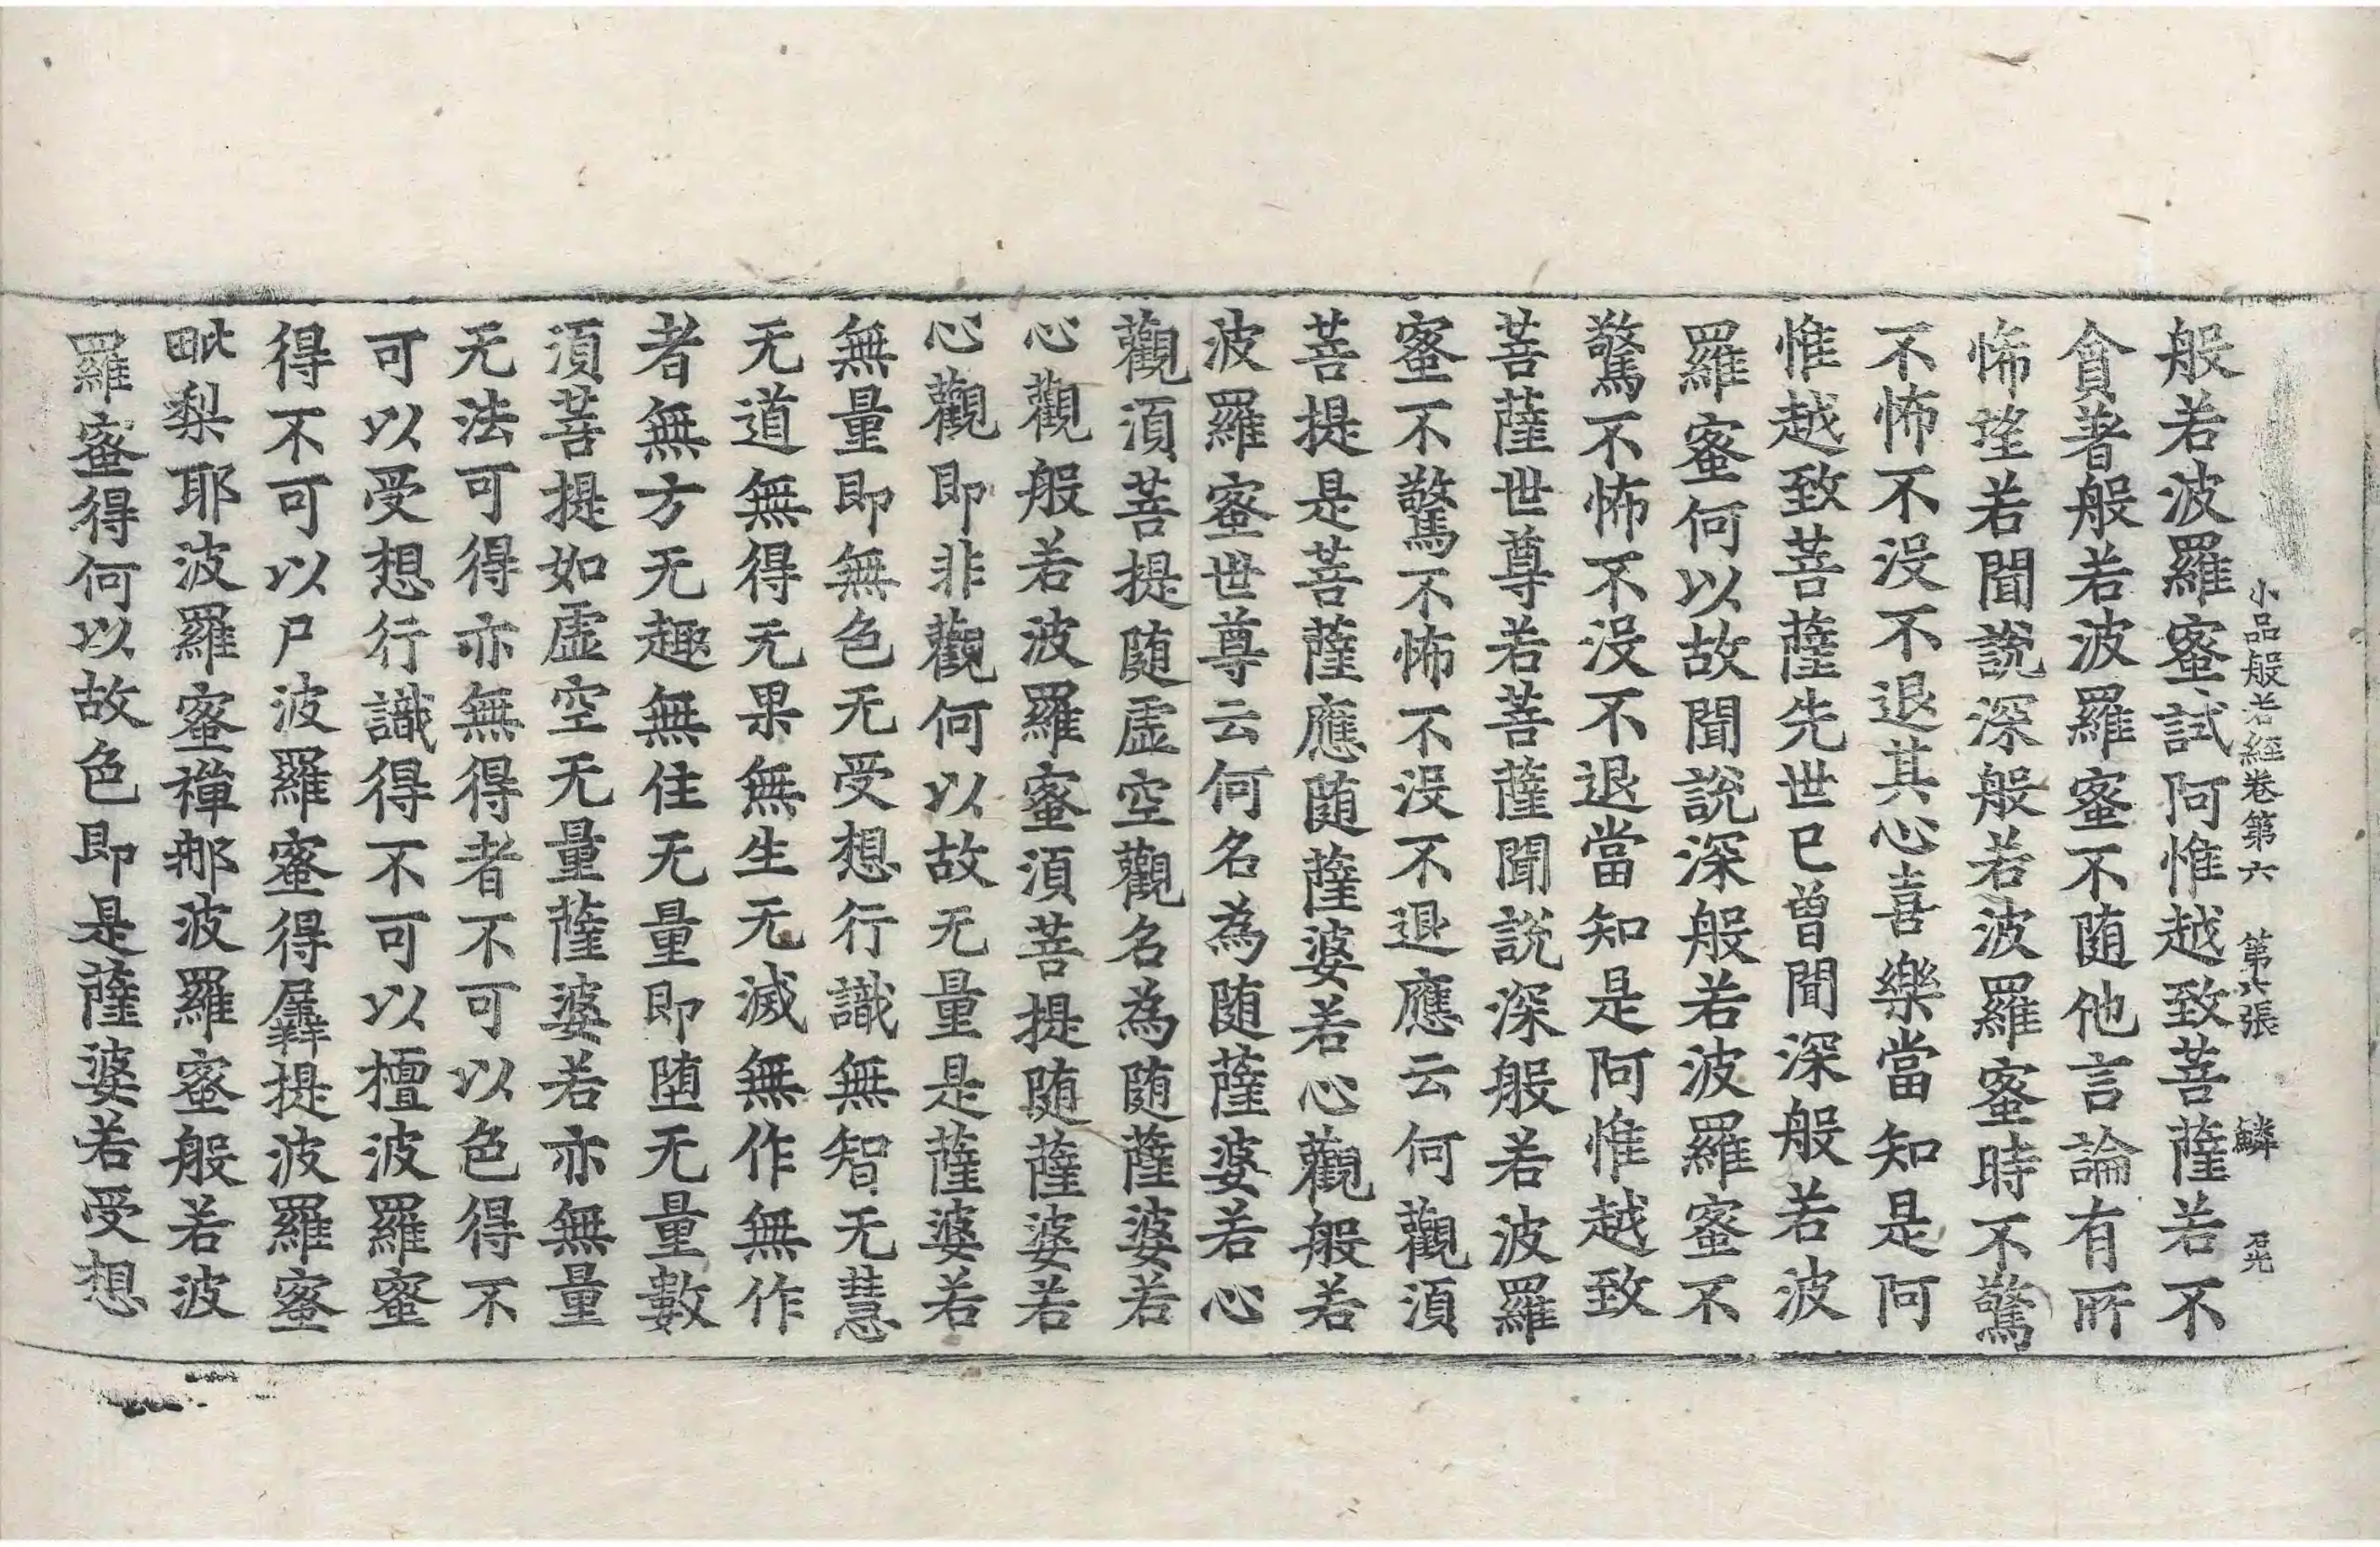 小品般若經卷第六 第六張 鱗 石光
般若波羅蜜試阿惟越致菩薩若不
貪著般若波羅蜜不随他言論有所
怖望若聞說深般若波羅蜜時不驚
不怖不没不退其心喜樂當知是阿
惟越致菩薩先世已曾聞深般若波
羅蜜何以故聞說深般若波羅蜜不
驚不怖不没不退當知是阿惟越致
菩薩世尊若菩薩聞說深般若波羅
蜜不驚不怖不没不退應云何觀湏
菩提是菩薩應随薩婆若心觀般若
波羅蜜世尊云何名為随薩婆若心
觀湏菩提随虛空觀名為随薩婆若
心觀般若波羅蜜湏菩提随薩婆若
心觀即非觀何以故无量是薩婆若
無量即無色无受想行識無智无慧
无道無得无果無生无滅無作無作
者無方无趣無住无量即堕无量數
湏菩提如虛空无量薩婆若亦無量
无法可得亦無得者不可以色得不
可以受想行識得不可以檀波羅蜜
得不可以尸波羅蜜得羼提波羅蜜
毗梨耶波羅蜜禪那波羅蜜般若波
羅蜜得何以故色即是薩婆若受想